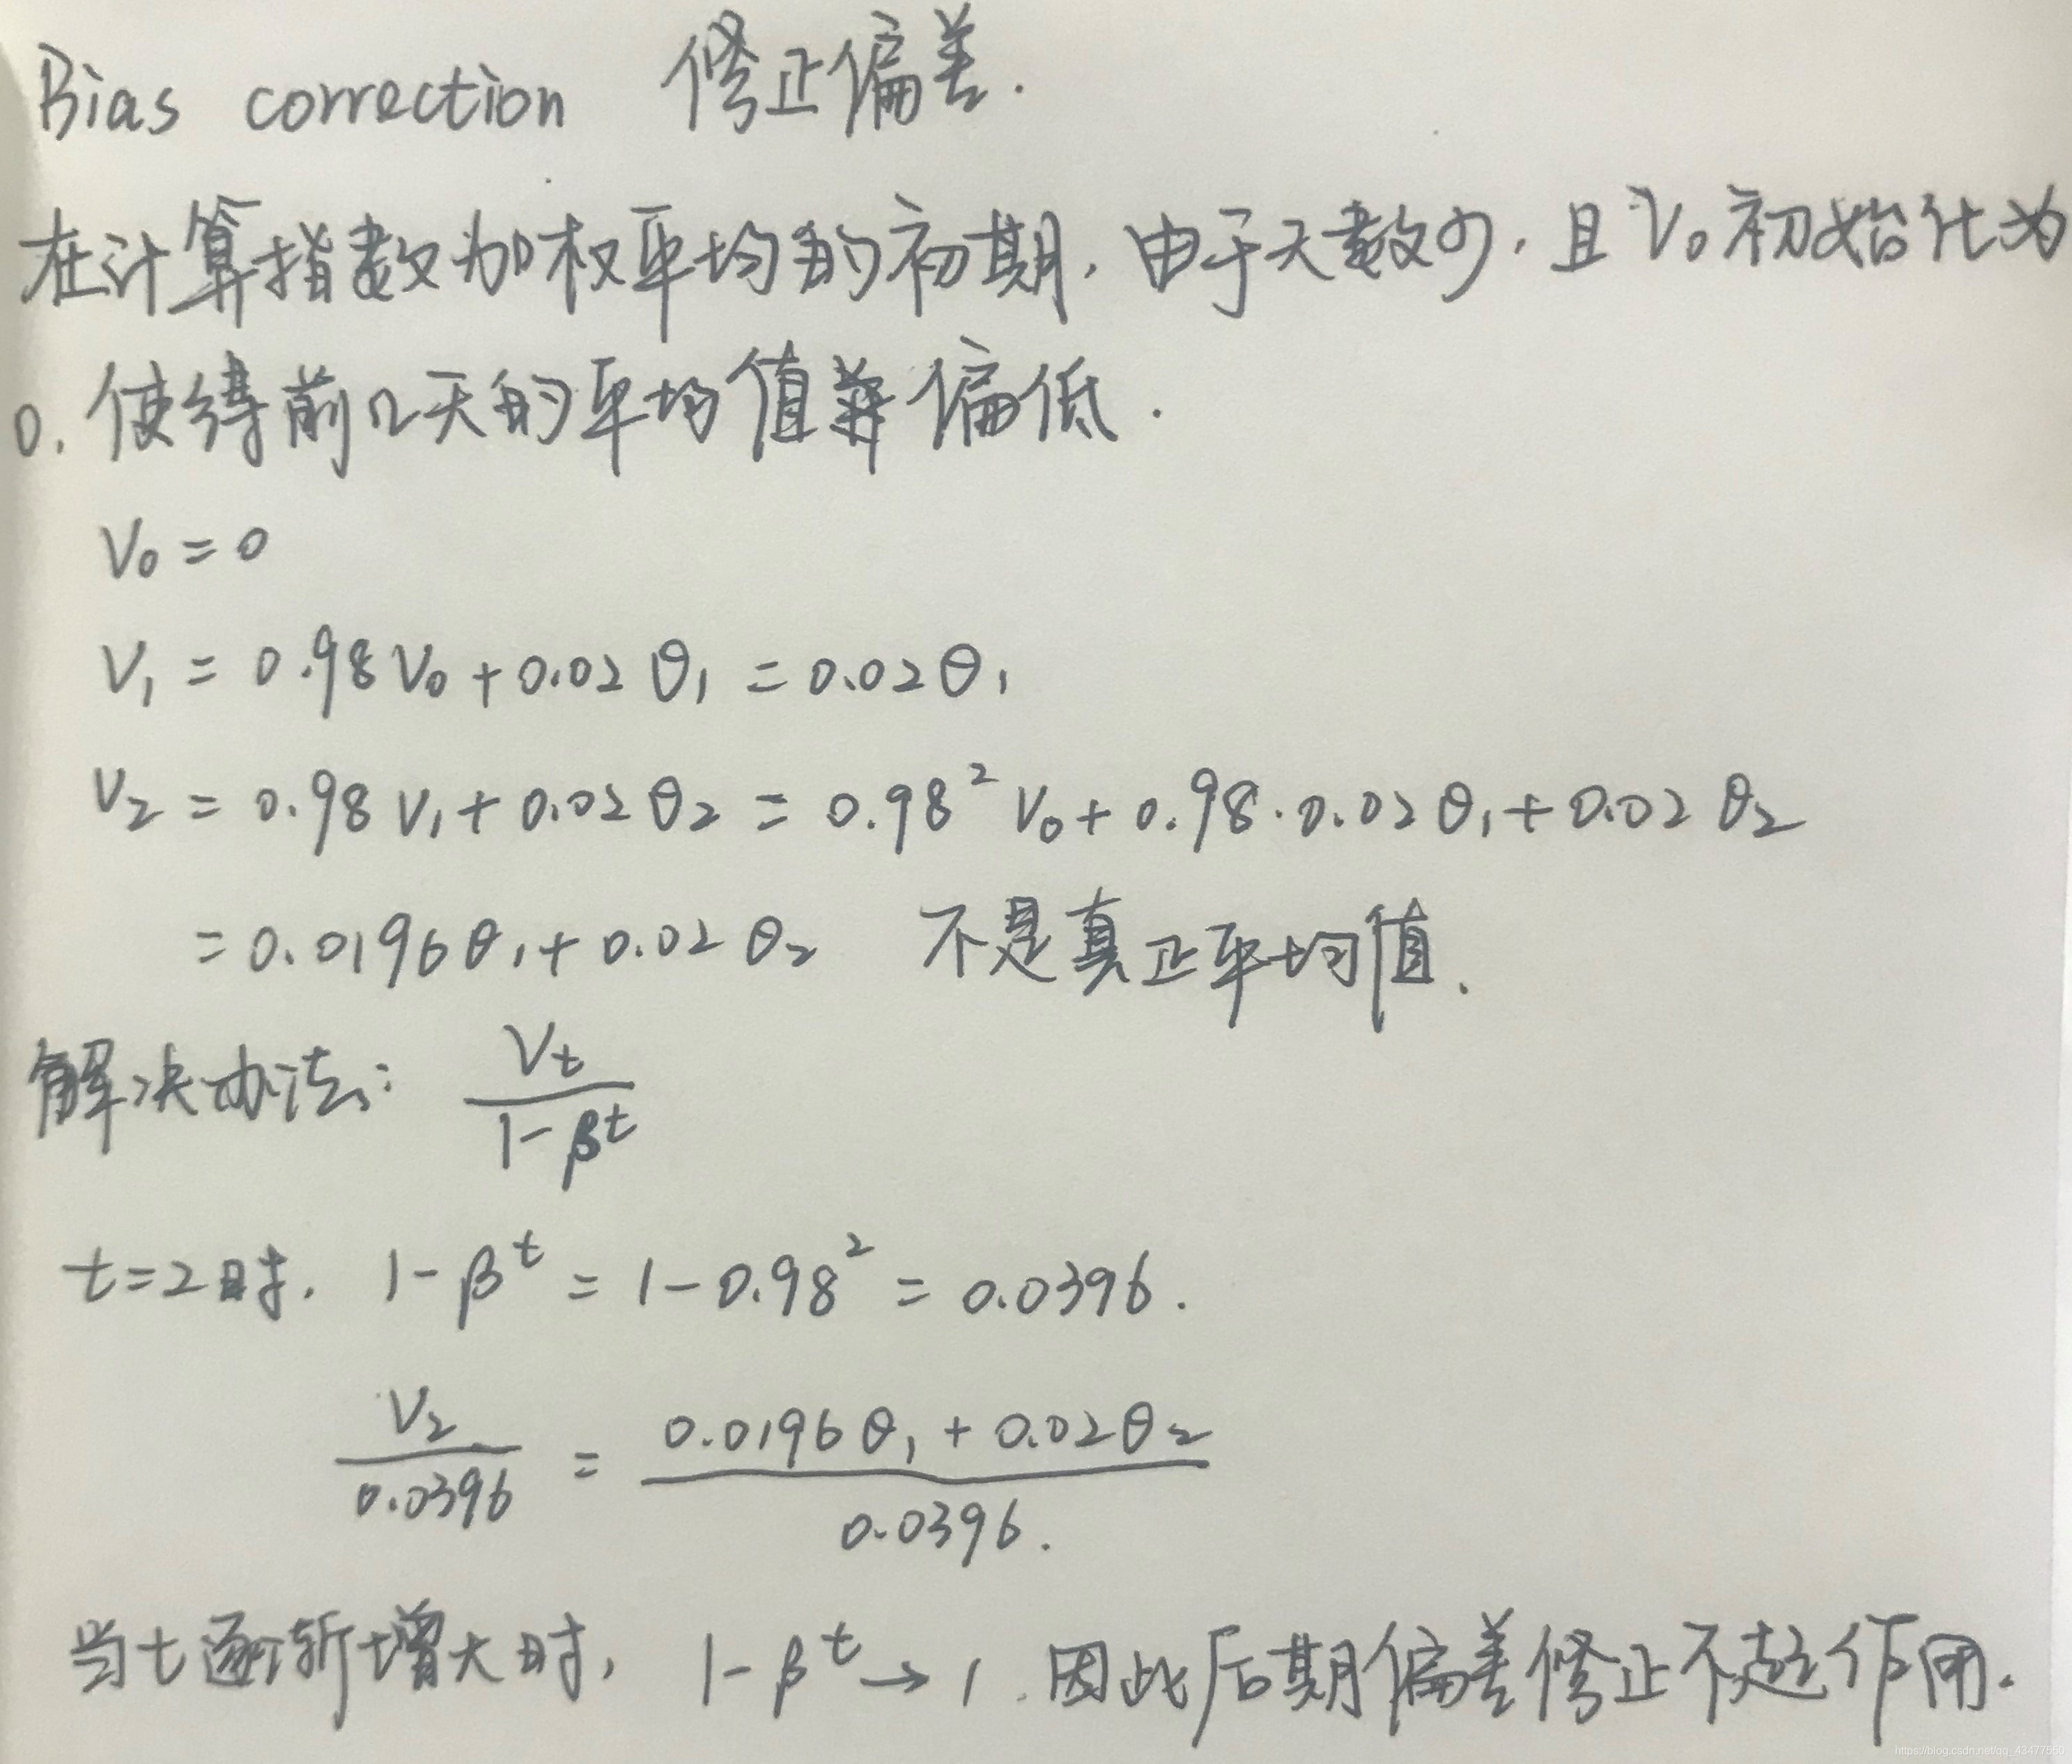 Bias correction 修正偏差.
在计算指数加权平均的初期,由于天数少,且V₀初始化为
0.使得前几天的平均值偏低.
V₀=0
V₁=0.98V₀+0.02θ₁=0.02θ₁
V₂=0.98V₁+0.02θ₂=0.98²V₀+0.98·0.02θ₁+0.02θ₂
=0.0196θ₁+0.02θ₂ 不是真正平均值.
解决办法: Vₜ/(1-βᵗ)
t=2时. 1-βᵗ=1-0.98²=0.0396.
V₂/0.0396=(0.0196θ₁+0.02θ₂)/0.0396.
当t逐渐增大时, 1-βᵗ→1.因此后期偏差修正不起作用.